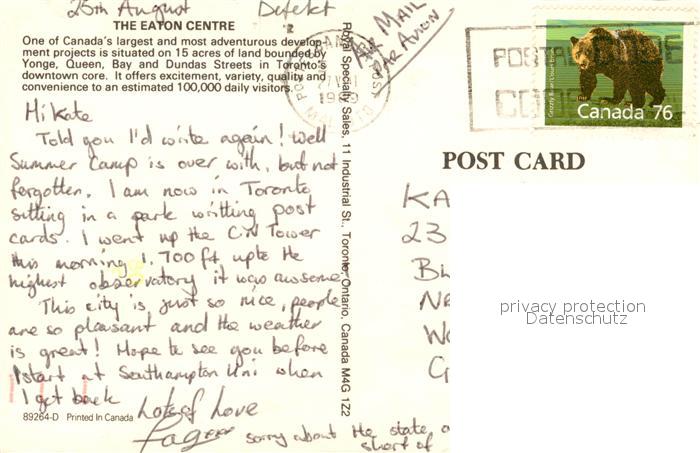 25th August Defekt
THE EATON CENTRE
One of Canada's largest and most adventurous develop-
ment projects is situated on 15 acres of land bounded by
Yonge, Queen, Bay and Dundas Streets in Toronto's
downtown core. It offers excitement, variety, quality and
convenience to an estimated 100,000 daily visitors.
Hi Kate
Told you I'd write again! Well
Summer Camp is over with, but not
forgotten. I am now in Toronto
sitting in a park writting post
cards. I went up the CN Tower
this morning 1,700ft upto the
highest observatory it was awsome
This city is just so nice, people
are so pleasant and the weather
is great! Hope to see you before
I start at Southampton Uni when
I get back
Lots of Love
sorry about the state,
short of
89264-D Printed In Canada
Royal Specialty Sales, 11 Industrial St., Toronto, Ontario, Canada M4G 1Z2
AIR MAIL
PAR AVION
CANADA
POSTAL CODE
Grizzly Bear
Canada 76
POST CARD
KA
23
Ne
privacy protection
Datenschutz